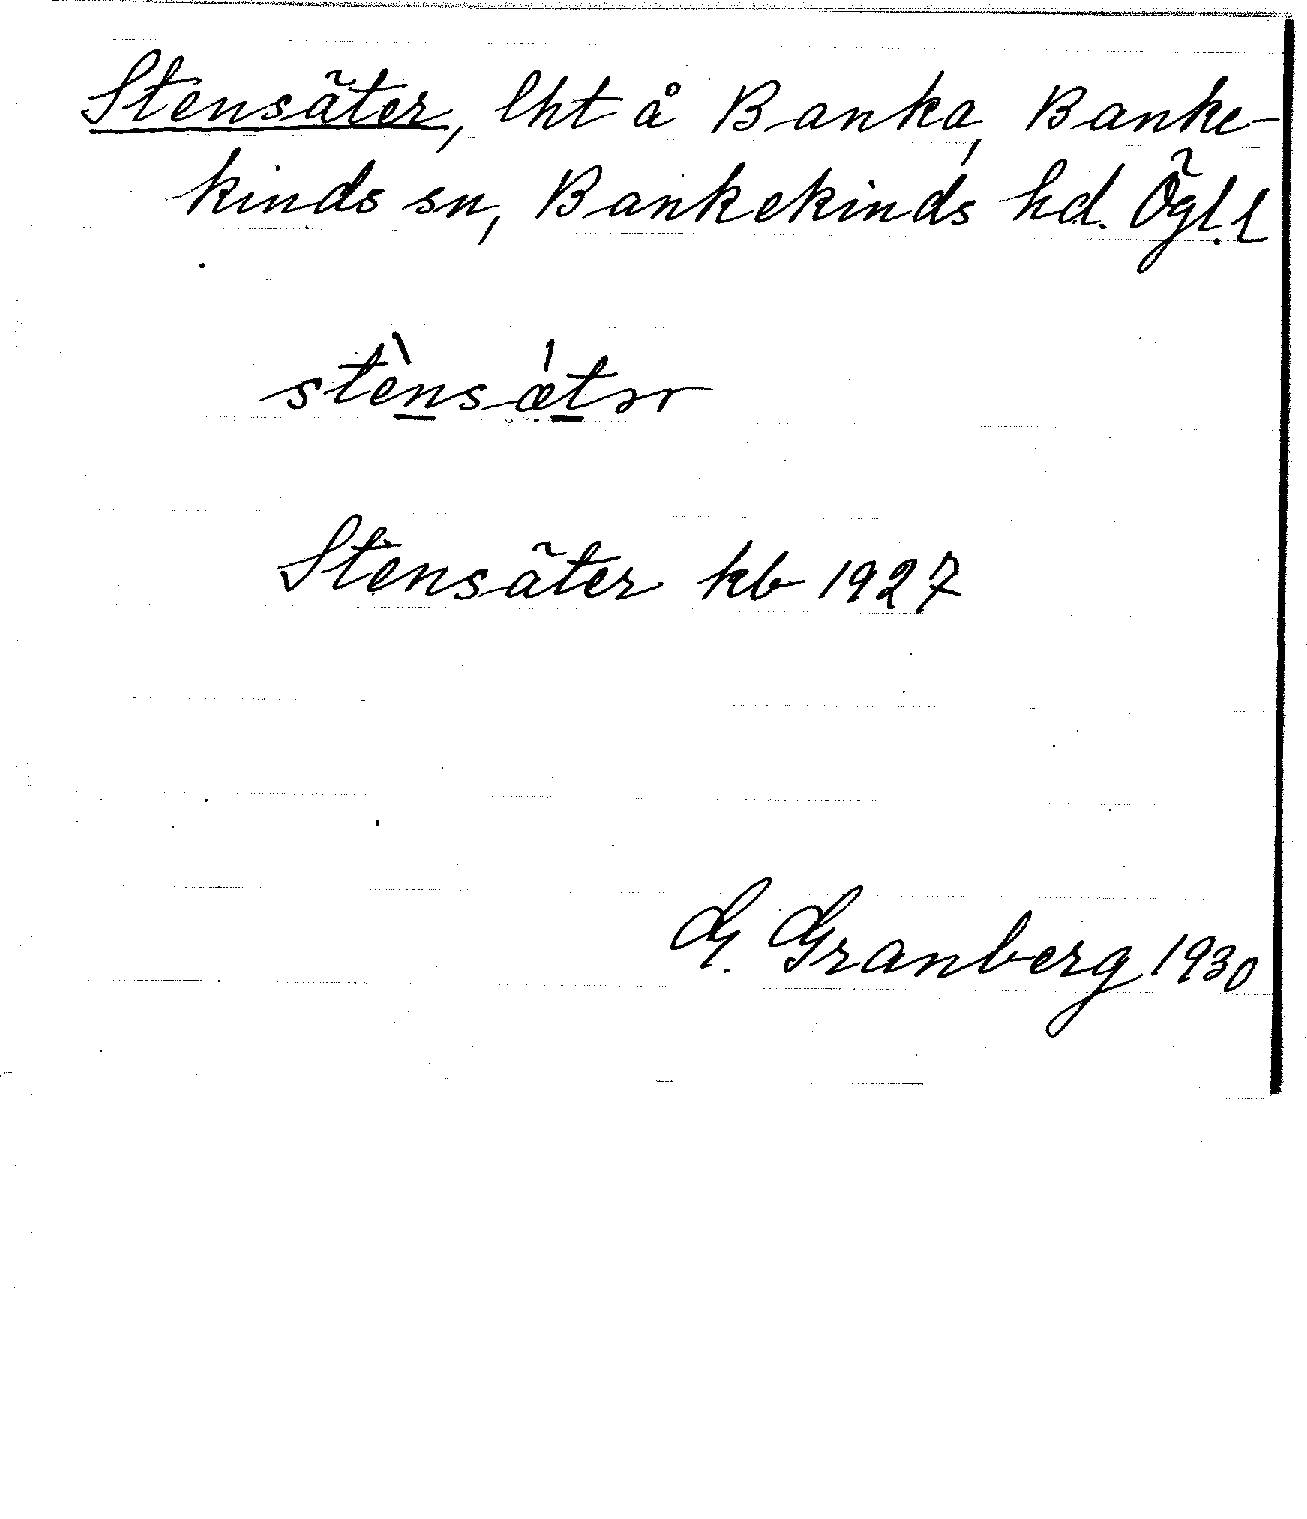 Stensäter, lht å Banka, Banke-
kinds sn, Bankekinds hd. Ögl. l
stènsǽtər
Stensäter kb 1927
G. Granberg 1930